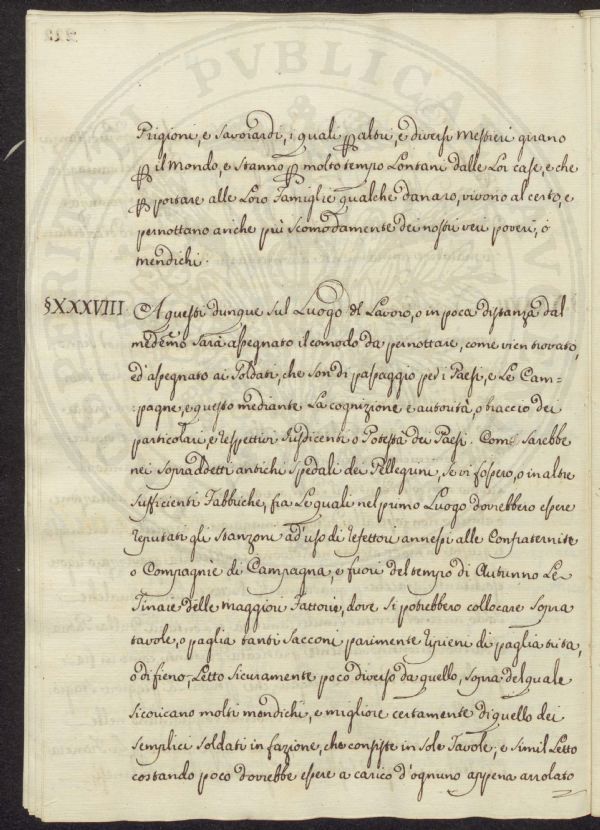 Prigioni, e Savoiardi, i quali p altri, e diversi Mestieri girano
p il Mondo, e Stanno p molto tempo Lontani dalle Lor case, e che
p portare alle Loro Famiglie qualche danaro, vivono al certo, e
pernottano anche più Scomodamente dei nostri veri poveri, ò
mendichi.
§XXXVIII A questi dunque sul Luogo del Lavoro, o in poca distanza dal
medemo Sarà assegnato il comodo da pernottare, come vien trovato,
ed' assegnato ai Soldati, che son di passaggio per i Paesi, e Le Cam=
:pagne, e questo mediante La cognizione e autorità, o braccio dei
particolari, e respettivi Jusdicenti o Potestà dei Paesi. Come Sarebbe
nei sopraddetti antichi spedali dei Pellegrini, se vi fossero, o in altre
sufficienti Fabbriche, fra Le quali nel primo Luogo dovrebbero essere
reputati gli Stanzoni ad' uso di refettori annessi alle Confraternite
o Compagnie di Campagna, e fuori del tempo di Autunno Le
Tinaie delle maggiori Fattorie, dove si potrebbero collocare Sopra
tavole, o paglia tanti Sacconi parimente ripieni di paglia trita,
o di fieno; Letto Sicuramente poco diverso da quello, sopra del quale
si coricano molti mendichi, e migliore certamente di quello dei
semplici soldati in fazione, che consiste in sole Tavole, e simil Letto
costando poco dovrebbe essere a carico d'ognuno appena arrolato
PVBLICA